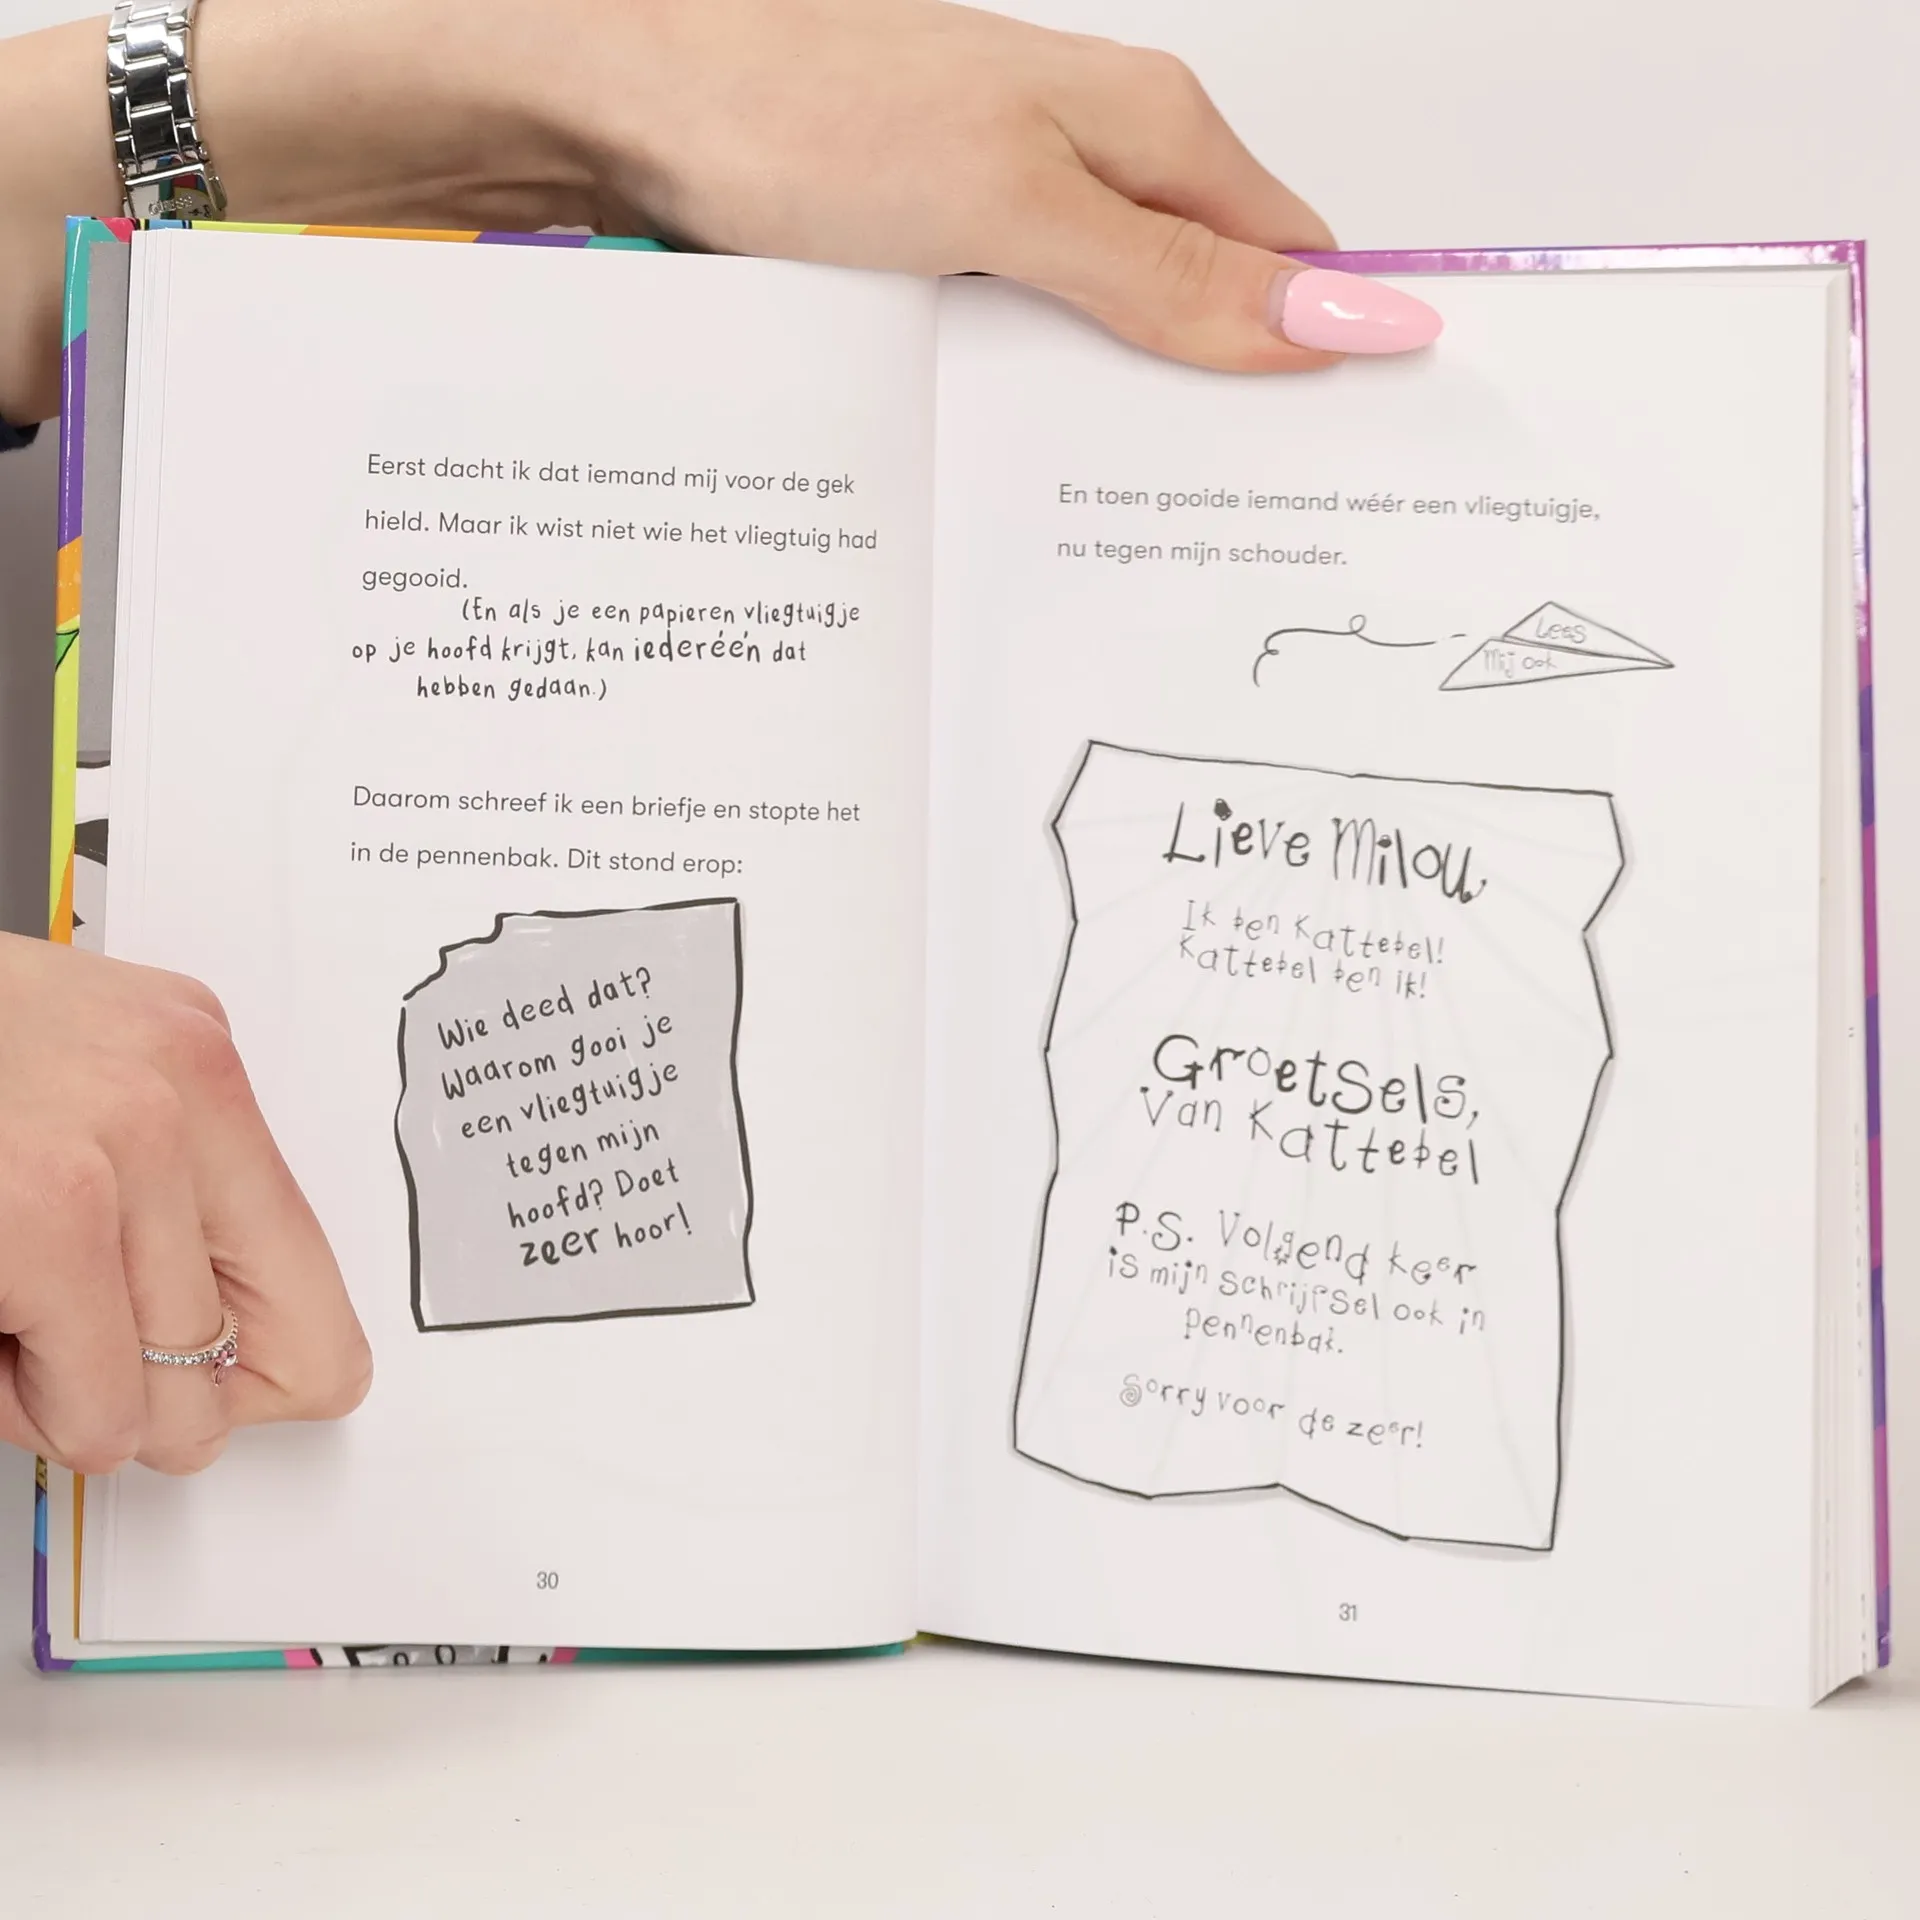 Eerst dacht ik dat iemand mij voor de gek
hield. Maar ik wist niet wie het vliegtuig had
gegooid.
(En als je een papieren vliegtuigje
op je hoofd krijgt, kan iederéén dat
hebben gedaan.)
Daarom schreef ik een briefje en stopte het
in de pennenbak. Dit stond erop:
Wie deed dat?
Waarom gooi je
een vliegtuigje
tegen mijn
hoofd? Doet
zeer hoor!
30
En toen gooide iemand wéér een vliegtuigje,
nu tegen mijn schouder.
Lees
Mij ook
Lieve Milou,
Ik ben Kattebel!
Kattebel ben ik!
Groetsels,
Van Kattebel
P.S. Volgend keer
is mijn schrijfsel ook in
pennenbak.
Sorry voor de zeer!
31